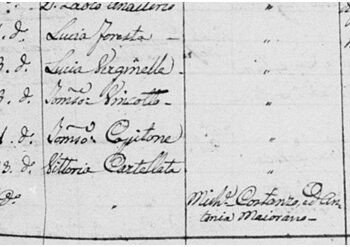 D. Lucio
1. do. Lucia Foresta "
3. do. Lucia Verginella "
3. do. Tomso. Vincotto "
1. do. Tomso. Capitone "
3. do. Vittoria Cartellata "
do. " Miche. Costanzo, ed An-
tonia Maiorano